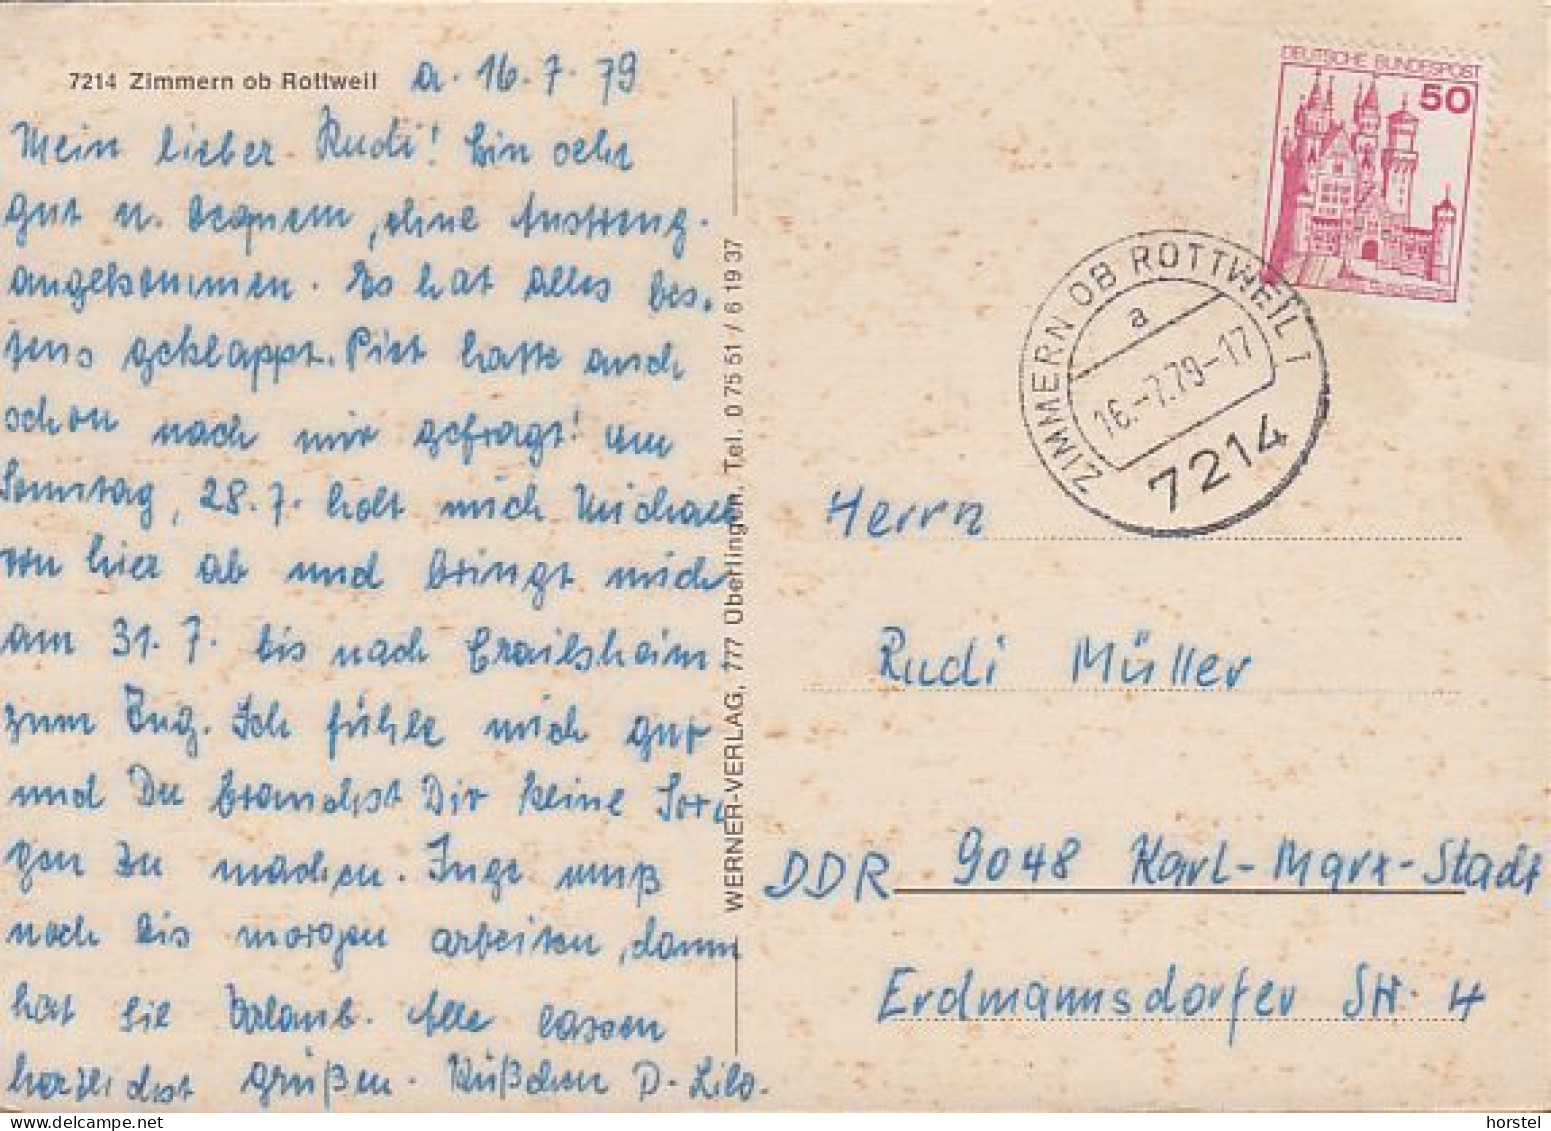 7214 Zimmern ob Rottweil a. 16.7.79
Mein lieber Rudi! Bin sehr
gut u. bequem, ohne Anstreng.
angekommen. Es hat alles bes-
tens geklappt. Piet hatte auch
schon nach mir gefragt! Am
Sonntag, 28.7. holt mich Michael
von hier ab und bringt mich
am 31.7. bis nach Crailsheim
zum Zug. Ich fühle mich gut
und Du brauchst Dir keine Sor-
gen zu machen. Inge muß
noch bis morgen arbeiten, dann
hat sie Urlaub. Alle lassen
herzlichst grüßen. Küßchen D. Lilo.
WERNER-VERLAG, 777 Überlingen, Tel. 0 75 51 / 6 19 37
DEUTSCHE BUNDESPOST
50
ZIMMERN OB ROTTWEIL 1
a
16.-7.79-17
7214
Herrn
Rudi Müller
DDR 9048 Karl-Marx-Stadt
Erdmannsdorfer Str. 4
horstel